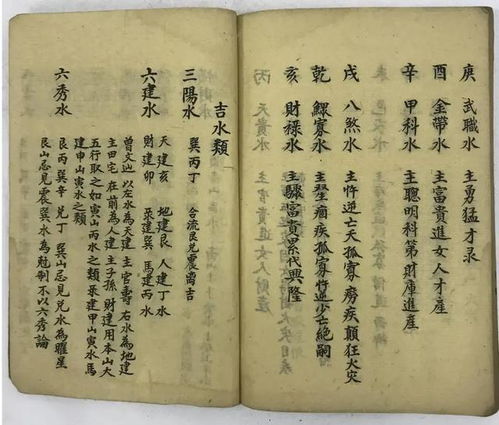 庚 武職水 主勇猛才录
酉 金帶水 主富貴進女人才産
辛 甲科水 主聰明科第財庫進產
戌 八煞水 主忤逆亡夭孤寡癆疾顛狂火灾
乾 鰥寡水 主聖痼疾孤寡忤逆少亡絕嗣
亥 財禄水 主驟富貴累代興隆
丙 天貴水
吉水類
三陽水 巽丙丁 合流艮兌震酉吉
六建水 天建亥 地建艮 人建丁水
財建卯 录建巽 馬建丙水
曾文辿以左水為天建主官壽右水為地建
主田宅在前為人建主子孫財建用本山大
五行取之如寅山丙水之類录建甲山寅水馬
建申山寅水之類
六秀水 艮丙巽辛兌丁 巽山忌見兌水為曜星
艮山忌見震巽水為尅制不以六秀論